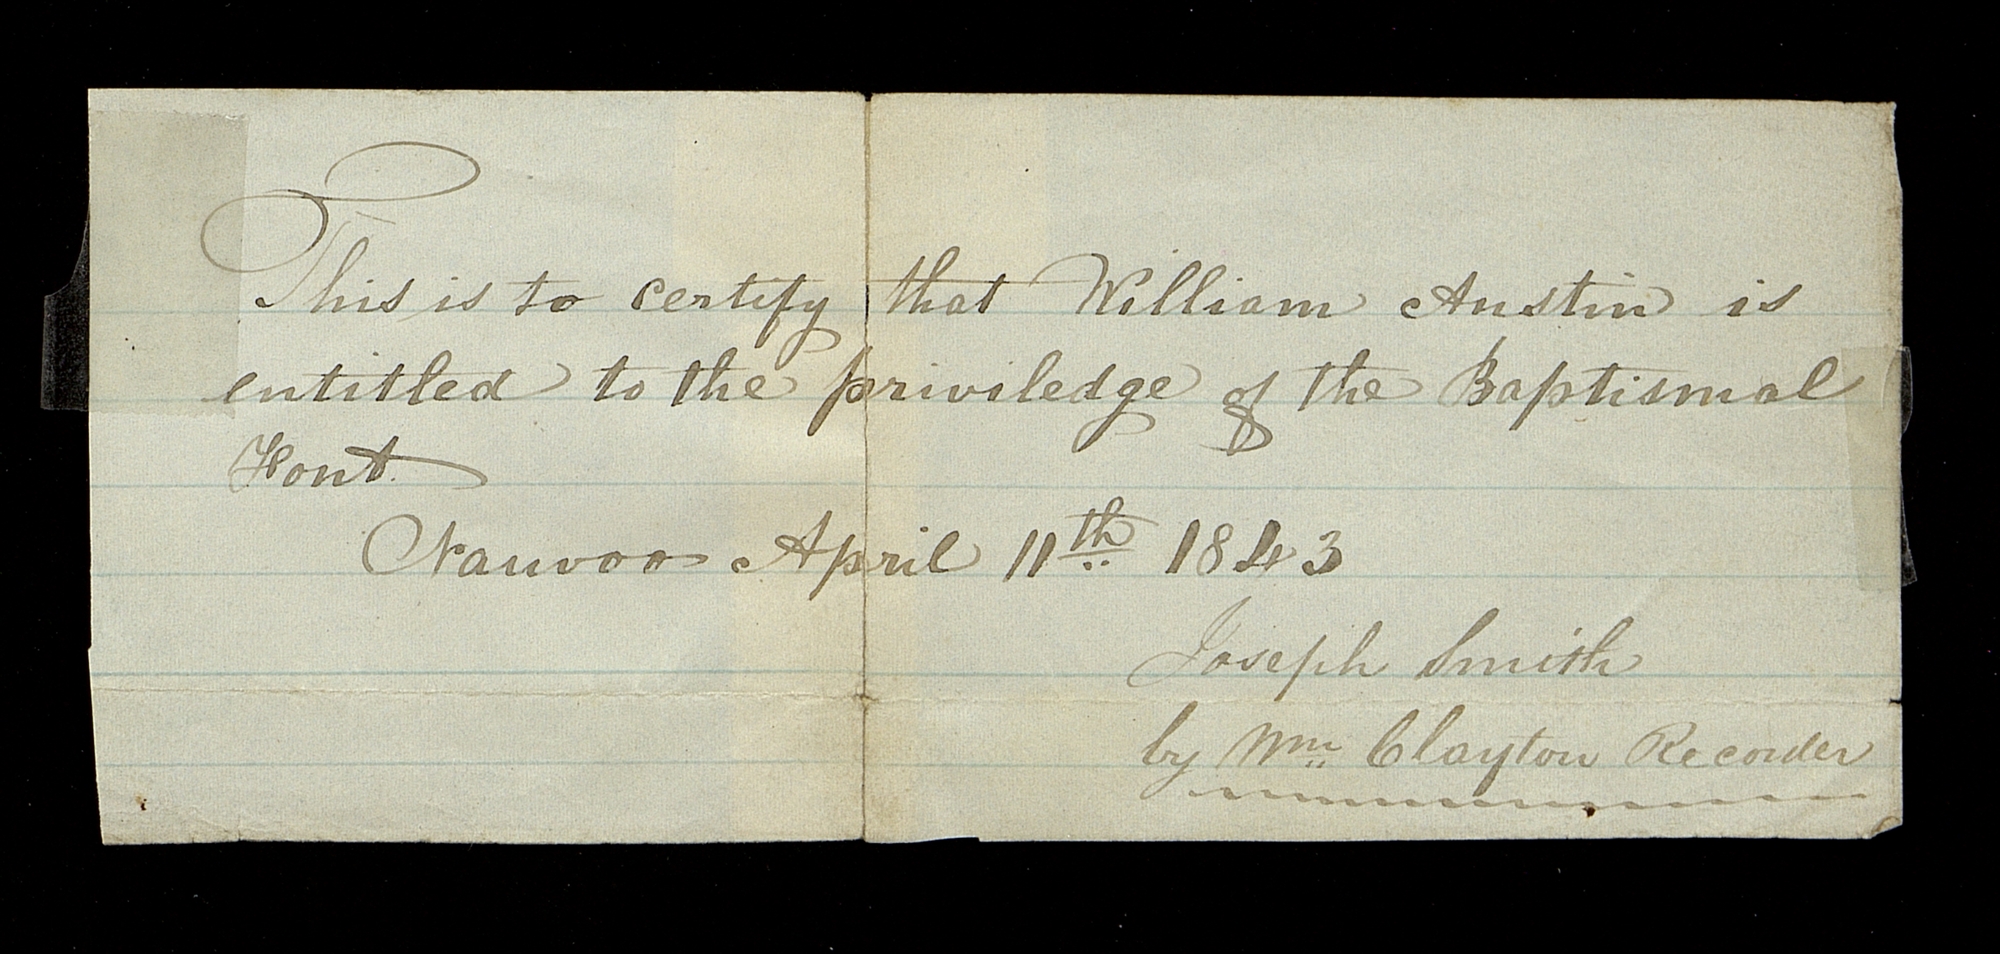 This is to certify that William Austin is
entitled to the priviledge of the Baptismal
Font.
Nauvoo April 11th 1843
Joseph Smith
by Wm Clayton Recorder